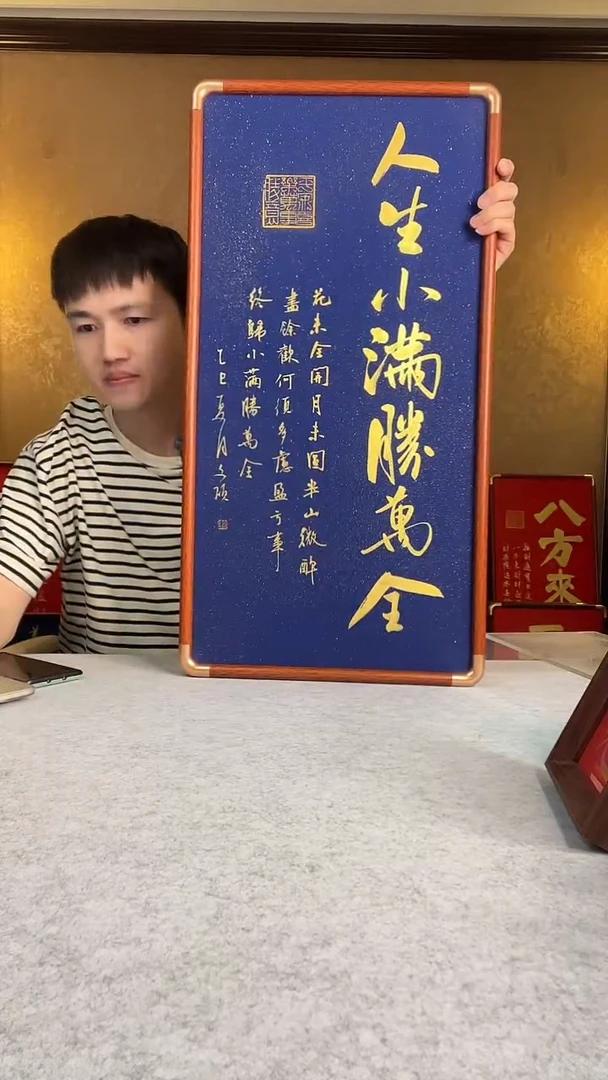 人生小滿勝萬全
花未全開月未圓半山微醉
盡餘歡何須多慮盈亏事
終歸小滿勝萬全
乙巳夏月文碩
八方來